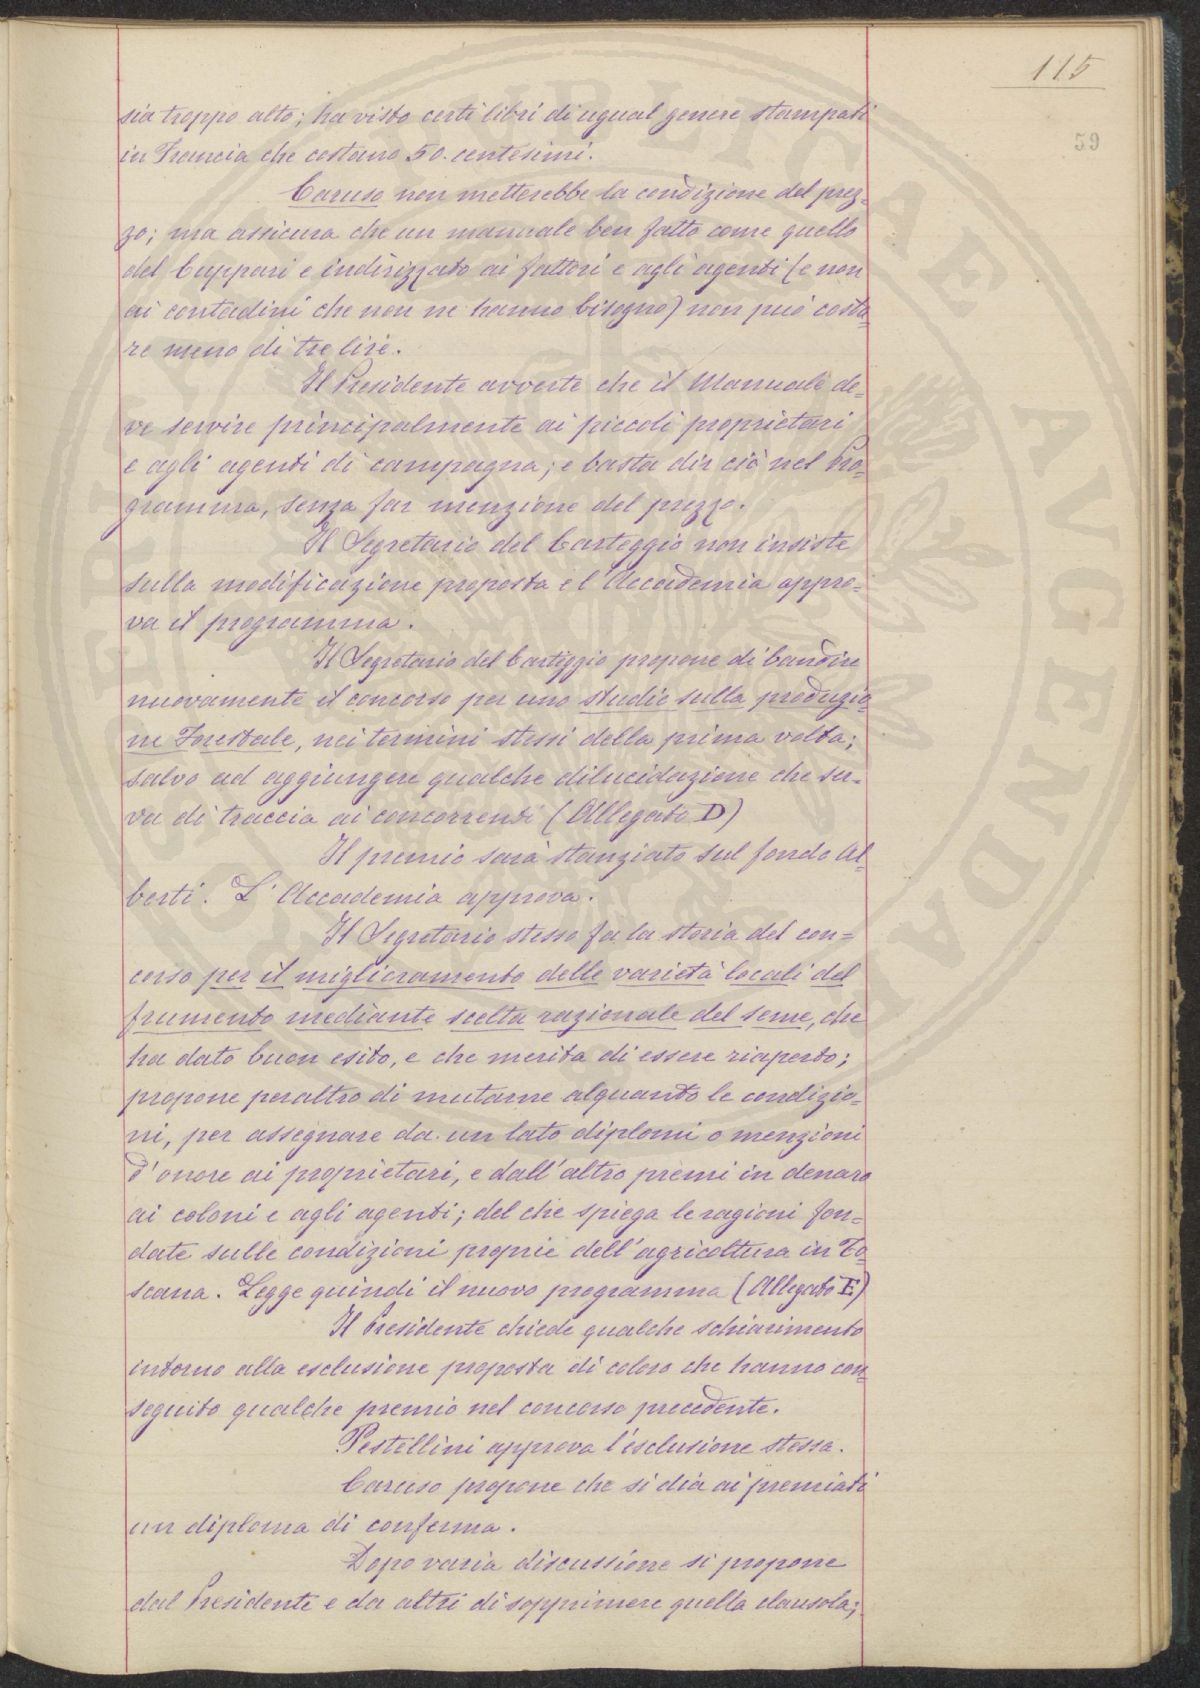 115
59
sia troppo alto; ha visto certi libri di ugual genere stampati
in Francia che costano 50 centesimi.
Caruso non metterebbe la condizione del prez-
zo; ma assicura che un manuale ben fatto come quello
del Cuppari e indirizzato ai fattori e agli agenti (e non
ai contadini che non ne hanno bisogno) non può costa-
re meno di tre lire.
Il Presidente avverte che il Manuale de-
ve servire principalmente ai piccoli proprietari
e agli agenti di campagna; e basta dir ciò nel Pro-
gramma, senza far menzione del prezzo.
Il Segretario del Carteggio non insiste
sulla modificazione proposta e l'Accademia appro-
va il programma.
Il Segretario del Carteggio propone di bandire
nuovamente il concorso per uno studio sulla produzio-
ne Forestale, nei termini stessi della prima volta;
salvo ad aggiungere qualche dilucidazione che ser-
va di traccia ai concorrenti (Allegato D)
Il premio sarà stanziato sul fondo Al-
berti. L'Accademia approva.
Il Segretario stesso fa la storia del con-
corso per il miglioramento delle varietà locali del
frumento mediante scelta razionale del seme, che
ha dato buon esito, e che merita di essere riaperto;
propone peraltro di mutarne alquanto le condizio-
ni, per assegnare da un lato diplomi o menzioni
d'onore ai proprietari, e dall'altro premi in denaro
ai coloni e agli agenti; del che spiega le ragioni fon-
date sulle condizioni proprie dell'agricoltura in To-
scana. Legge quindi il nuovo programma (Allegato E)
Il Presidente chiede qualche schiarimento
intorno alla esclusione proposta di coloro che hanno con-
seguito qualche premio nel concorso precedente.
Pestellini approva l'esclusione stessa.
Caruso propone che si dia ai premiati
un diploma di conferma.
Dopo varia discussione si propone
dal Presidente e da altri di sopprimere quella clausola;